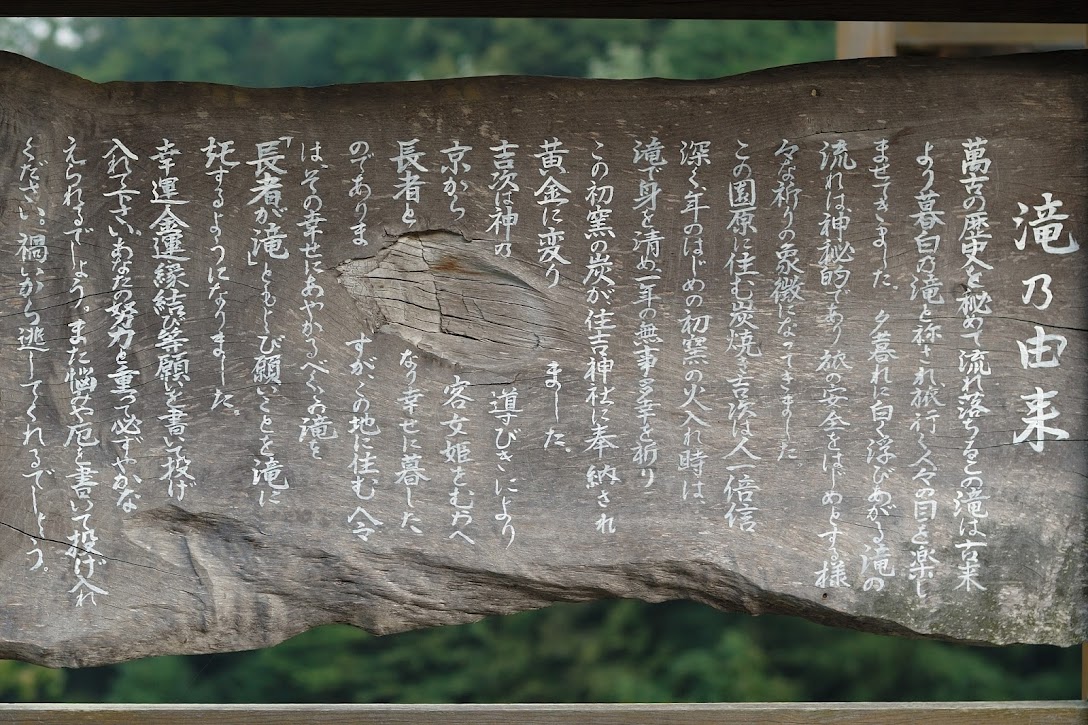 滝乃由来
萬古の歴史を秘めて流れ落ちるこの滝は古来
より暮白の滝と称され旅行く人々の目を楽し
ませてきました。夕暮れに白く浮びあがる滝の
流れは神秘的であり旅の安全をはじめとする様
々な祈りの象徴になってきました
この園原に住む炭焼き吉次は人一倍信
深く、年のはじめの初窯の火入れ時は、
滝で身を清め一年の無事多幸を祈り
この初窯の炭が住吉神社に奉納され
黄金に変り ました。
吉次は神の 導びきにより
京から 客女姫をむかへ
長者と なり幸せに暮した、
のでありま すがこの地に住む人々
は、その幸せにあやかるべくお滝を
「長者が滝」ともよび願いごとを滝に
託するようになりました。
幸運金運縁結び等願いを書いて投げ
入れて下さいあなたの努力と重って必ずやかな
えられるでしょう。また悩みや厄を書いて投げ入れ
ください。禍いから逃してくれるでしょう。